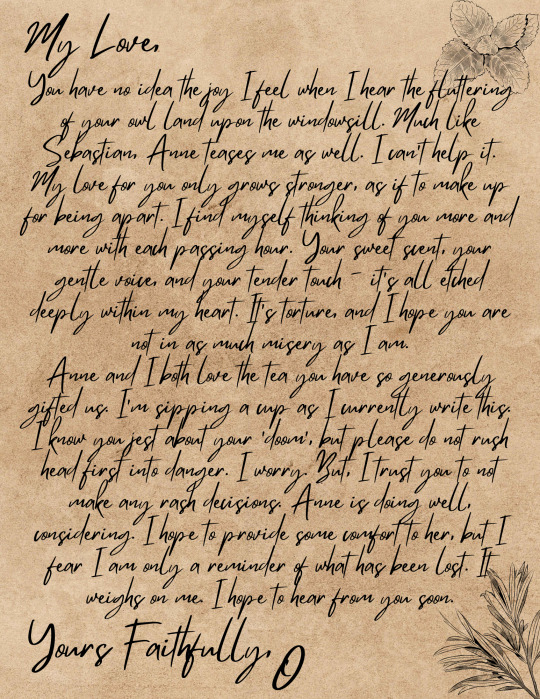 My Love,
You have no idea the joy I feel when I hear the fluttering
of your owl land upon the windowsill. Much like
Sebastian, Anne teases me as well. I can't help it.
My love for you only grows stronger, as if to make up
for being apart. I find myself thinking of you more and
more with each passing hour. Your sweet scent, your
gentle voice, and your tender touch - it's all etched
deeply within my heart. It's torture, and I hope you are
not in as much misery as I am.
Anne and I both love the tea you have so generously
gifted us. I'm sipping a cup as I currently write this.
I know you jest about your 'doom', but please do not rush
head first into danger. I worry. But, I trust you to not
make any rash decisions. Anne is doing well,
considering. I hope to provide some comfort to her, but I
fear I am only a reminder of what has been lost. It
weighs on me. I hope to hear from you soon.
Yours Faithfully,
O